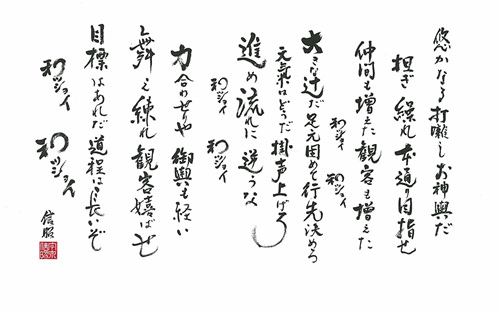 悠かなる打囃しお神輿だ
担ぎ繰れ本通り目指せ
仲間も増えた観客も増えた
和ッショイ 和ッショイ
大きな辻だ足元固めて行先決めろ
元気はどうだ掛声上げろ
進め流れに逆うな
和ッショイ 和ッショイ
力合わせりや御輿も軽い
舞え練れ観客嬉ばせ
目標はあれだ道程は長いぞ
和ッショイ 和ッショイ
信昭